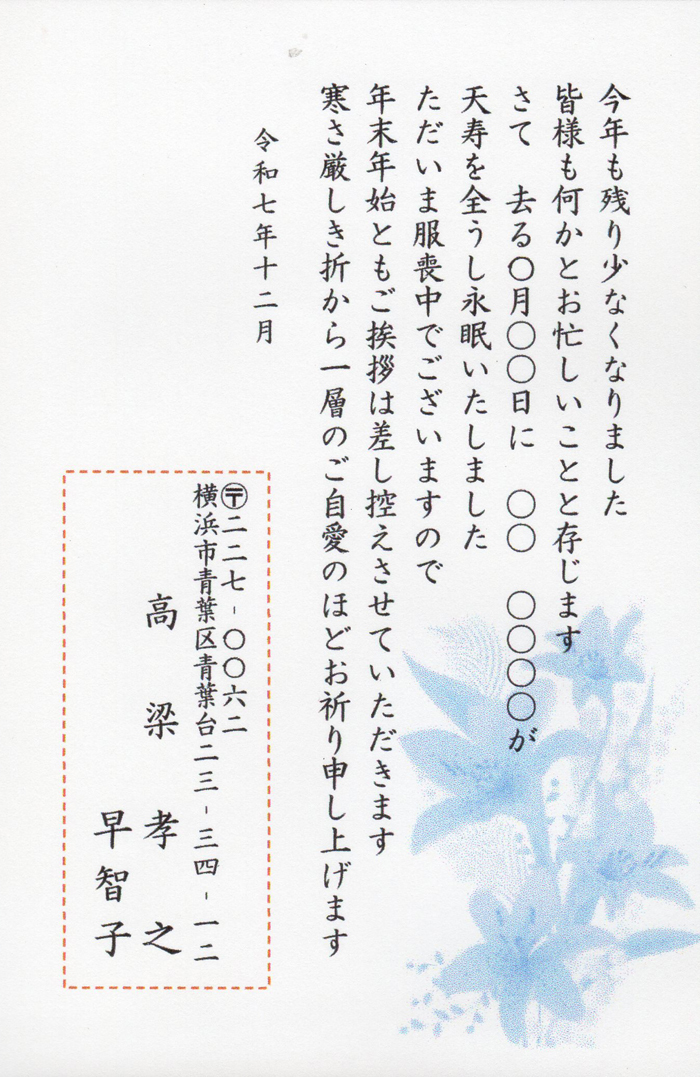 今年も残り少なくなりました
皆様も何かとお忙しいことと存じます
さて　去る〇月〇〇日に　〇〇　〇〇〇〇が
天寿を全うし永眠いたしました
ただいま服喪中でございますので
年末年始ともご挨拶は差し控えさせていただきます
寒さ厳しき折から一層のご自愛のほどお祈り申し上げます
令和七年十二月
〶二二七-〇〇六二
横浜市青葉区青葉台二三-三四-一二
高梁孝之
早智子